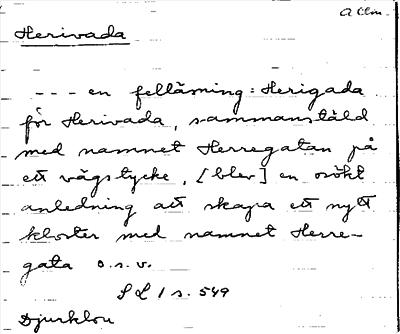 Allm
Herivada
- - - en felläsning: Herigada
för Herivada, sammanställd
med namnet Herregatan på
ett vägstycke, [blev] en osökt
anledning att skapa ett nytt
kloster med namnet Herre-
gata o.s.v.
SL 1 s. 549
Djurklou